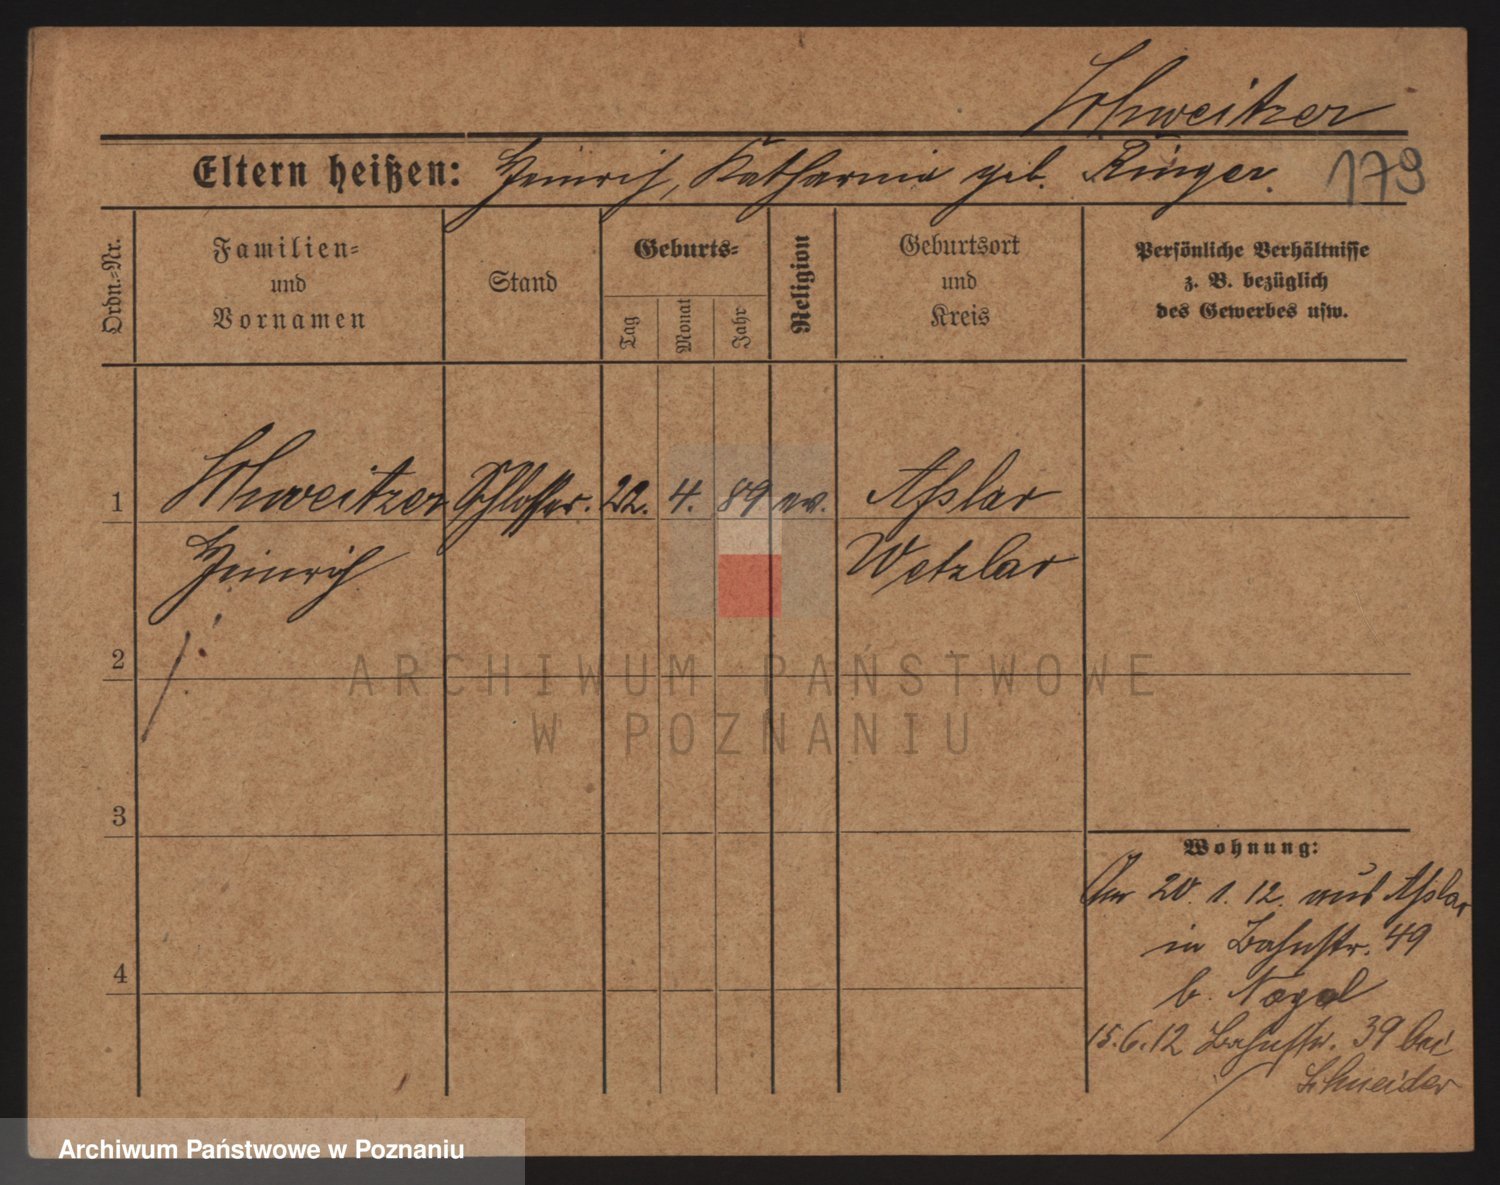 Schweitzer
Eltern heißen: Heinrich, Katharina geb. Ringer. 179
Ordn.-Nr.
Familien- und Vornamen
Stand
Geburts-
Tag
Monat
Jahr
Religion
Geburtsort und Kreis
Persönliche Verhältnisse
z. B. bezüglich
des Gewerbes usw.
1 Schweitzer Schlosser. 22. 4. 89 ev. Aßlar
Heinrich Wetzlar
2
ARCHIWUM PAŃSTWOWE
W POZNANIU
3
Wohnung:
Am 20. 1. 12. aus Aßlar
in Bahnstr. 49
4
b. Nagel
15.6.12 Bahnstr. 39 bei
Schneider
Archiwum Państwowe w Poznaniu